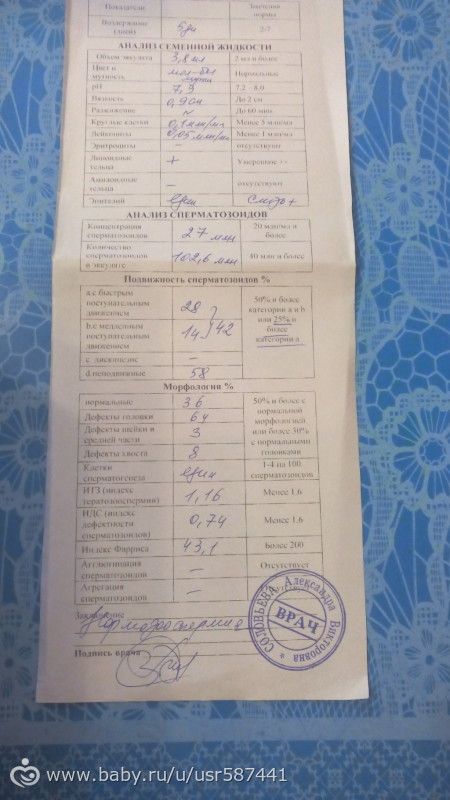 Показатели Значения нормы
Воздержание (дней) 5дн 2-7
АНАЛИЗ СЕМЕННОЙ ЖИДКОСТИ
Объем эякулята 3,8 мл 2 мл и более
Цвет и мутность мол-бел Нормальные
pH 7,3 7,2 - 8,0
Вязкость 0,9 см До 2 см
Разжижение До 60 мин
Круглые клетки 0,1 млн/мл Менее 5 млн/мл
Лейкоциты 0,05 млн/мл Менее 1 млн/мл
Эритроциты – отсутствуют
Липоидные тельца + Умеренное
Амилоидные тельца – отсутствуют
Эпителий един
АНАЛИЗ СПЕРМАТОЗОИДОВ
Концентрация сперматозоидов 27 млн 20 млн/мл и более
Количество сперматозоидов в эякуляте 102,6 млн 40 млн и более
Подвижность сперматозоидов %
a.с быстрым поступательным движением 28
50% и более категории a и b или 25% и более категории a
b.с медленным поступательным движением 14 42
c. дискинезис –
d.неподвижные 58
Морфология %
нормальные 36
50% и более с нормальной морфологией или более 30% с нормальными головками
Дефекты головки 64
Дефекты шейки и средней части 3
Дефекты хвоста 8
Клетки сперматогенеза един 1-4 на 100 сперматозоидов
ИТЗ (индекс тератозооспермии) 1,16 Менее 1,6
ИДС (индекс дефектности сперматозоидов) 0,74 Менее 1,6
Индекс Фарриса 43,1 Более 200
Агглютинация сперматозоидов – Отсутствует
Агрегация сперматозоидов –
Заключение
Нормозооспермия
Подпись врача
СОЛОВЬЕВА Александра Викторовна
ВРАЧ
www.baby.ru/u/usr587441